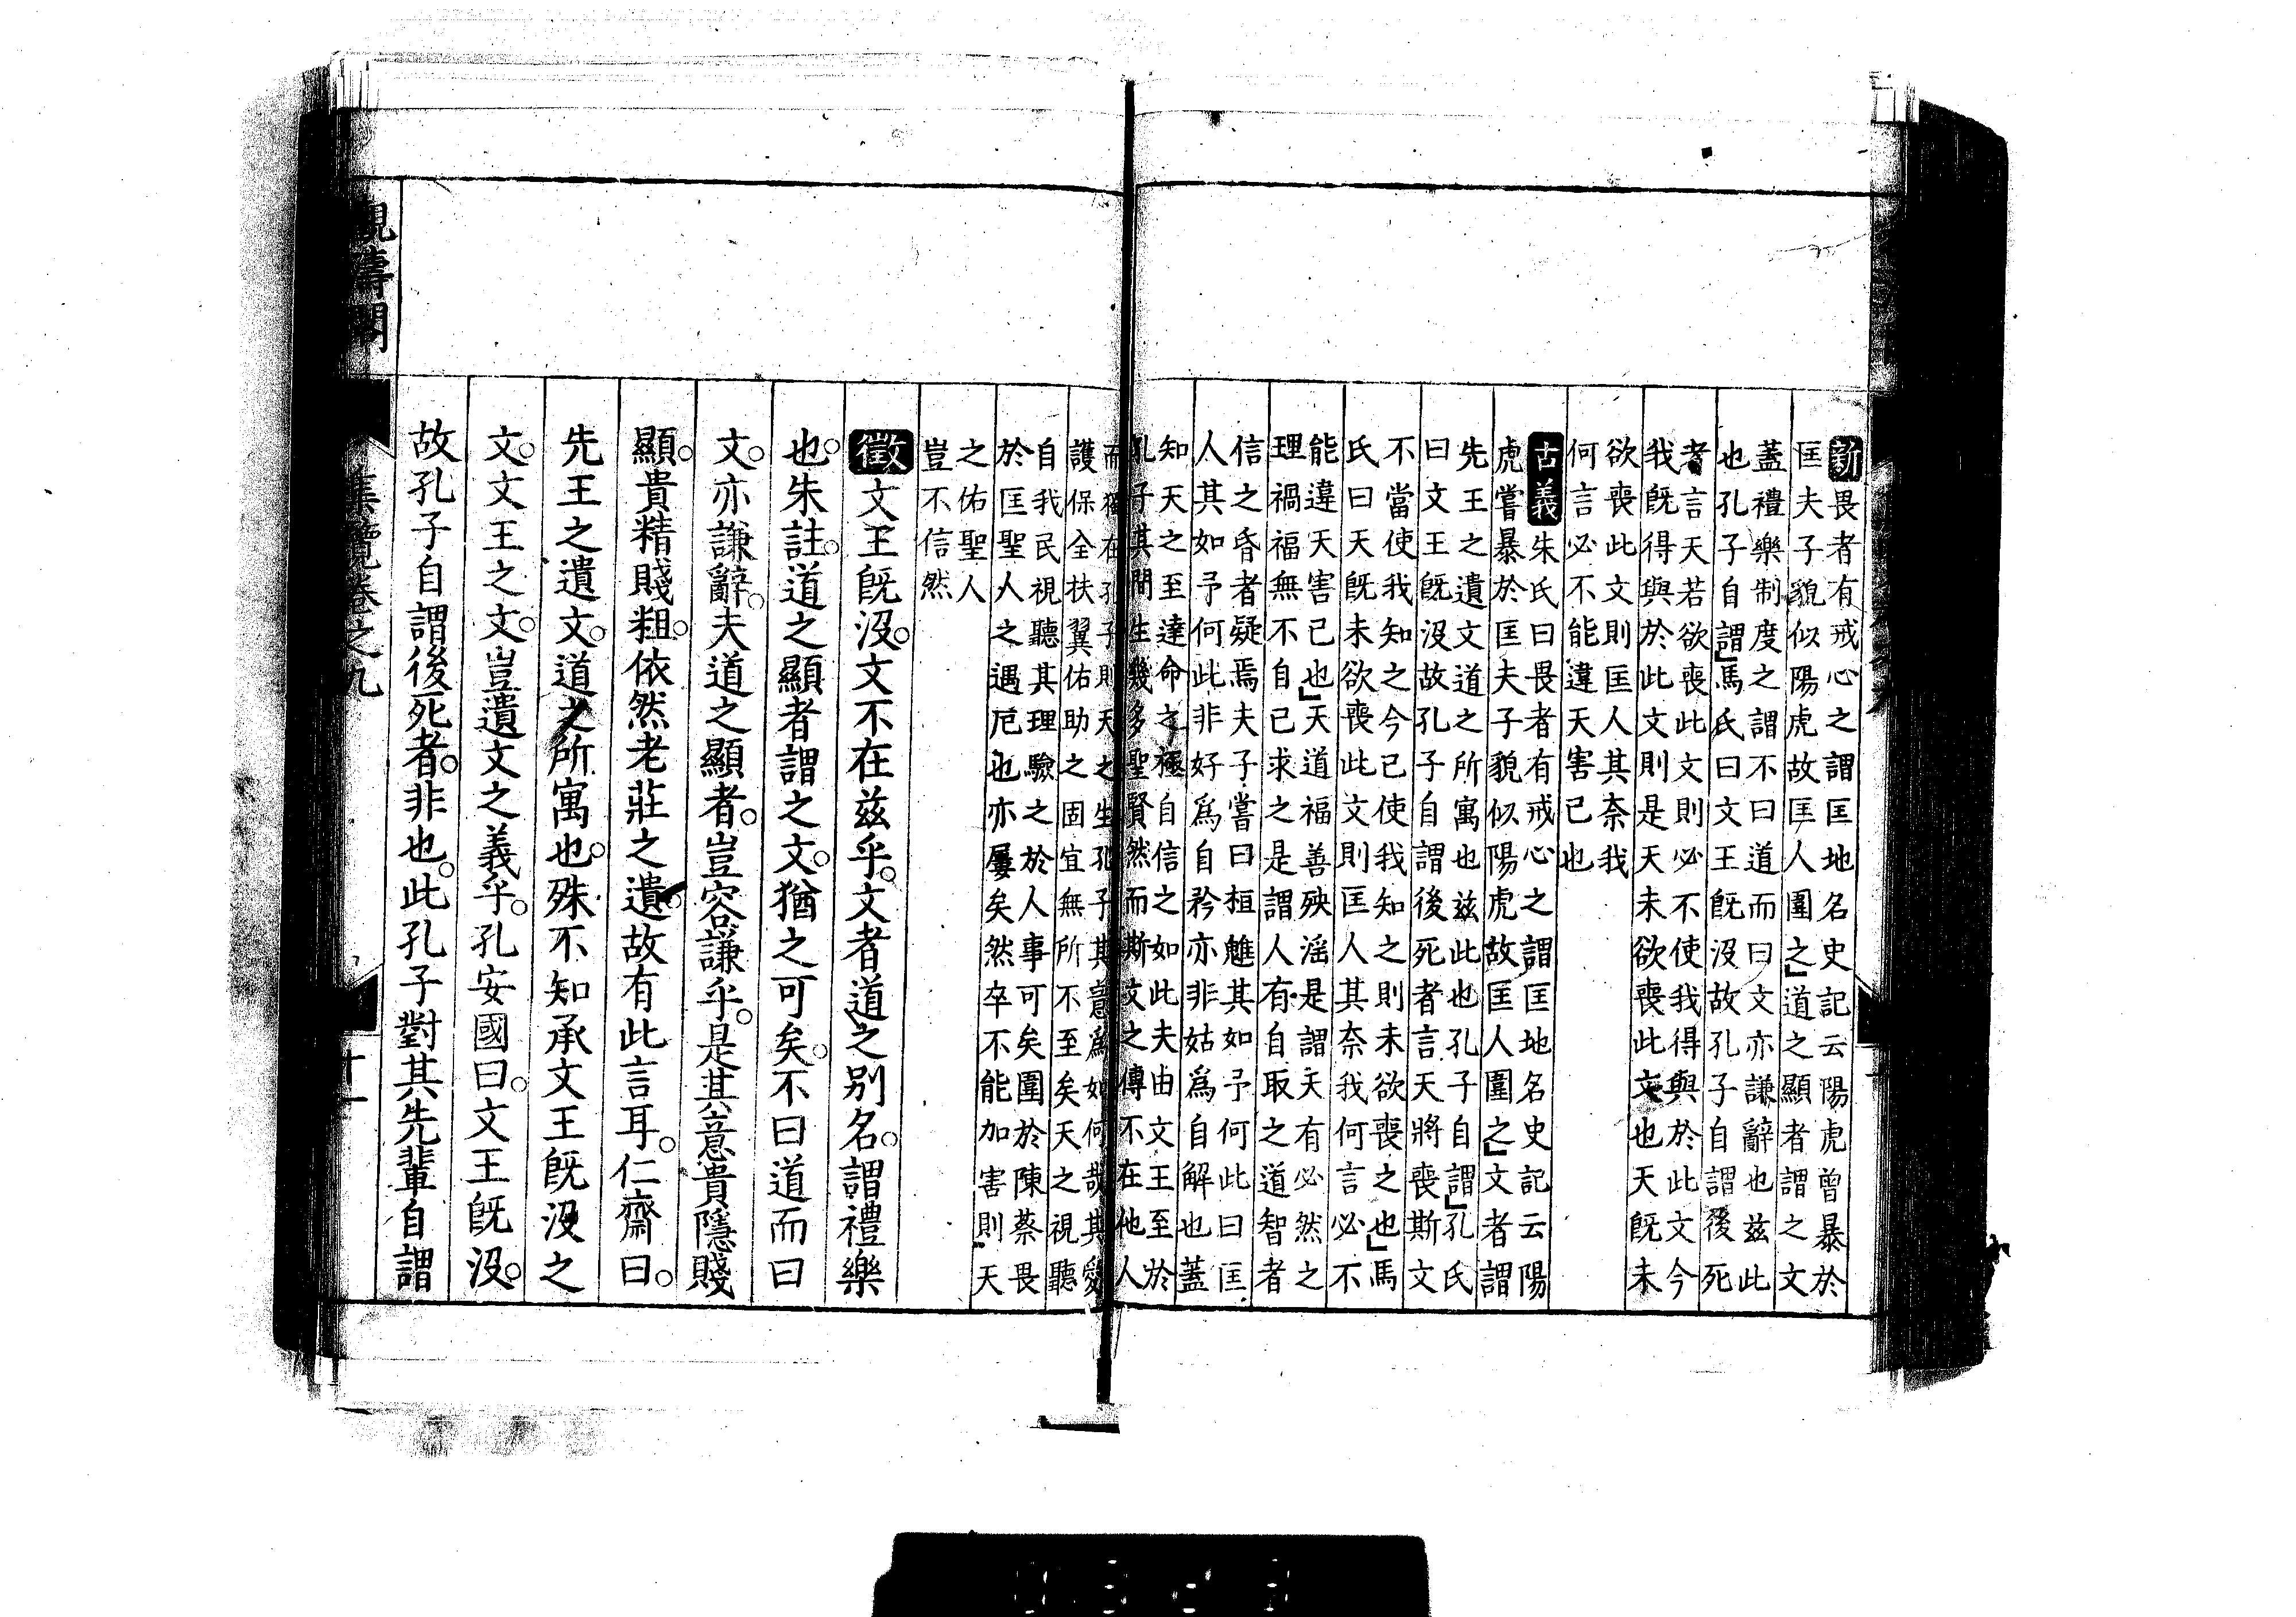 新畏者有戒心之謂匡地名史記云陽虎曾暴於
匡夫子貌似陽虎故匡人圍之」道之顯者謂之文
蓋禮樂制度之謂不曰道而曰文亦謙辭也茲此
也孔子自謂」馬氏曰文王既沒故孔子自謂後死
者言天若欲喪此文則必不使我得與於此文今
我既得與於此文則是天未欲喪此文也天既未
欲喪此文則匡人其奈我
何言必不能違天害已也
古義朱氏曰畏者有戒心之謂匡地名史記云陽
虎嘗暴於匡夫子貌似陽虎故匡人圍之」文者謂
先王之遺文道之所寓也茲此也孔子自謂」孔氏
曰文王既沒故孔子自謂後死者言天將喪斯文
不當使我知之今已使我知之則未欲喪之也」馬
氏曰天既未欲喪此文則匡人其奈我何言必不
能違天害已也」天道福善殃淫是謂天有必然之
理禍福無不自已求之是謂人有自取之道智者
信之昏者疑焉夫子嘗曰桓魋其如予何此曰匡
人其如予何此非好爲自矜亦非姑爲自解也蓋
知天之至達命之極自信之如此夫由文王至於
孔子其間生幾多聖賢然而斯文之傳不在他人
而獨在孔子則天之生孔子其意爲如何哉其愛
護保全扶翼佑助之固宜無所不至矣天之視聽
自我民視聽其理驗之於人事可矣圍於陳蔡畏
於匡聖人之遇厄也亦屢矣然卒不能加害則天
之佑聖人
豈不信然
徵文王既沒。文不在茲乎。文者道之別名。謂禮樂
也。朱註。道之顯者謂之文。猶之可矣。不曰道而曰
文。亦謙辭。夫道之顯者。豈容謙乎。是其意貴隱賤
顯。貴精賤粗。依然老莊之遺。故有此言耳。仁齋曰。
先王之遺文。道之所寓也。殊不知承文王既沒之
文。文王之文。豈遺文之義乎。孔安國曰。文王既沒。
故孔子自謂後死者。非也。此孔子對其先輩自謂
觀濤閣
集覽卷之九
十一